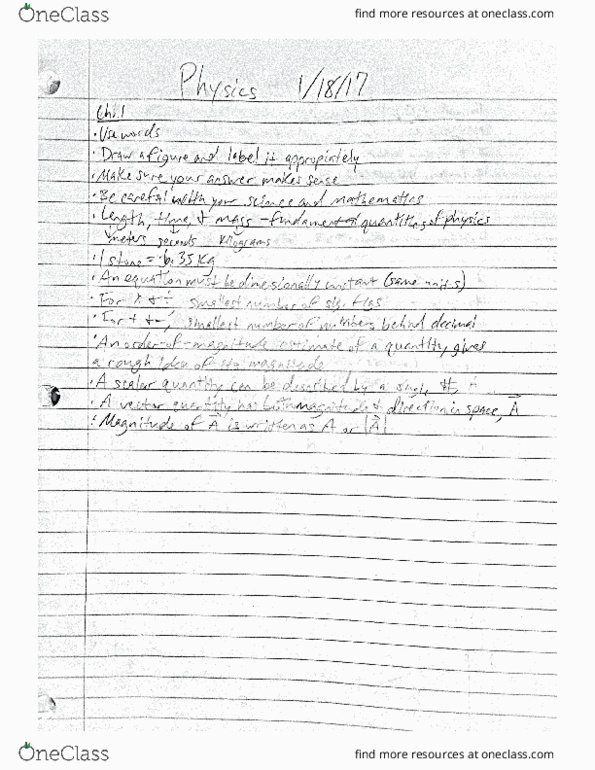 OneClass
find more resources at oneclass.com
Physics 1/18/17
Ch.1
• Use words
• Draw a figure and label it appropiately
• Make sure your answer makes sense
• Be careful with your science and mathematics
• Length, time, + mass - fundamental quantities of physics
meters seconds kilograms
• 1 stone = 6.35 Kg
• An equation must be dimensionally (same units)
• For × + ÷ smallest number of sig. figs
• For + + -, smallest number of numbers behind decimal
• An order-of-magnitude estimate of a quantity, gives
a rough idea of magnitude
• A scalar quantity can be described by a #,
• A vector quantity has both magnitude + direction in space, A⃗
• Magnitude of A⃗ is written as A or |A⃗|
OneClass
find more resources at oneclass.com